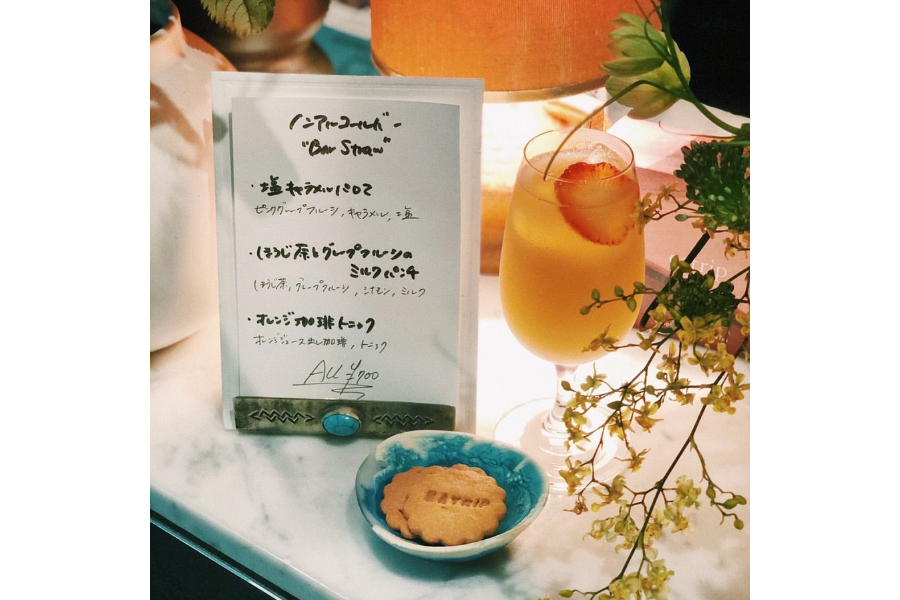 ノンアルコールバー
"Bar Straw"
・塩キャラメルパロマ
ピンクグレープフルーツ, キャラメル, 塩
・ほうじ茶とグレープフルーツの
ミルクパンチ
ほうじ茶, グレープフルーツ, シナモン, ミルク
・オレンジ珈琲トニック
オレンジジュース出し珈琲, トニック
All ¥700
BATRIP
trip